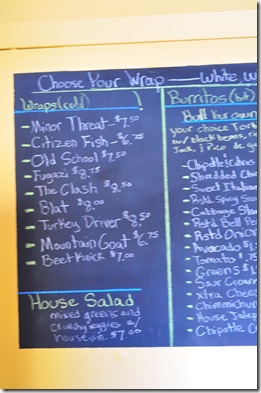 Choose Your Wrap — White W
Wraps (cold)
- Minor Threat - $7.50
- Citizen Fish - $6.75
- Old School $7.50
- Fugazi $8.75
- The Clash $8.50
- Blat $8.00
- Turkey Driver $8.50
- Mountain Goat $6.75
- Beet Knick $7.00
House Salad
mixed greens and
crunchy veggies w/
house vin. $7.00
Burritos (hot)
Build Your own
your choice Tort
w/ black beans, r
Jack, & Pico de ga
- Chipotle
- Shredded Chic
- Sweet Italian
- Rstd Spicy
- Cabbage Slaw
- Rstd Bell Pe
- Rstd Onio
- Avocado $1.
- Tomato $.75
- Greens $1
- Sour Cream
- Xtra Chees
- Chimmichur
- House Jalep
- Chipotle C